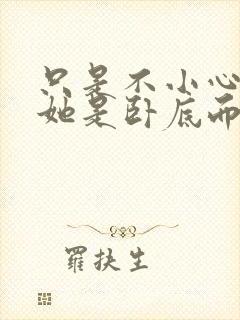 只是不小心
她是卧底而
罗扶生